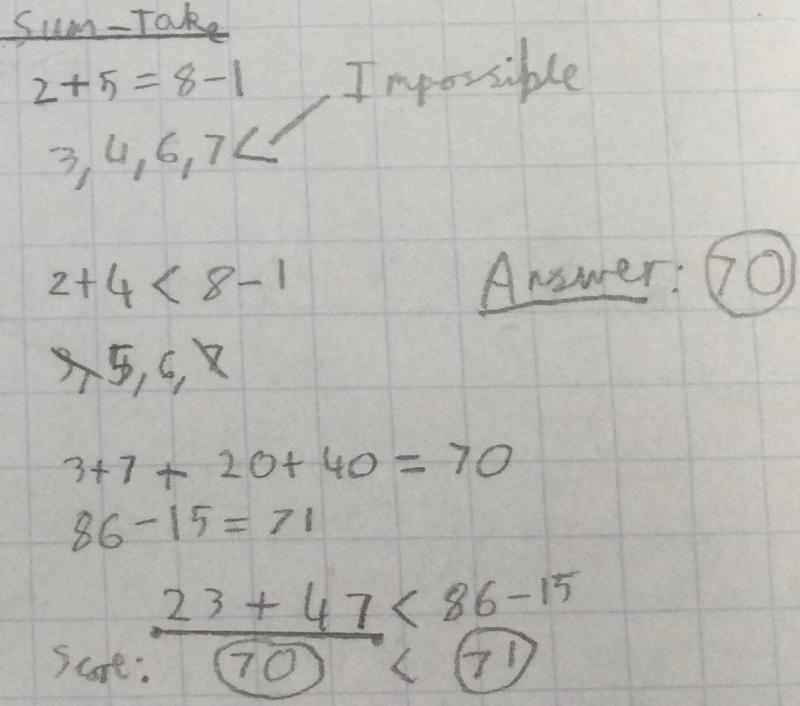 Sum-Take
2+5=8-1
Impossible
3,4,6,7<
2+4<8-1
Answer: 70
3,5,6,7
3+7+20+40=70
86-15=71
23+47<86-15
Score: 70 < 71